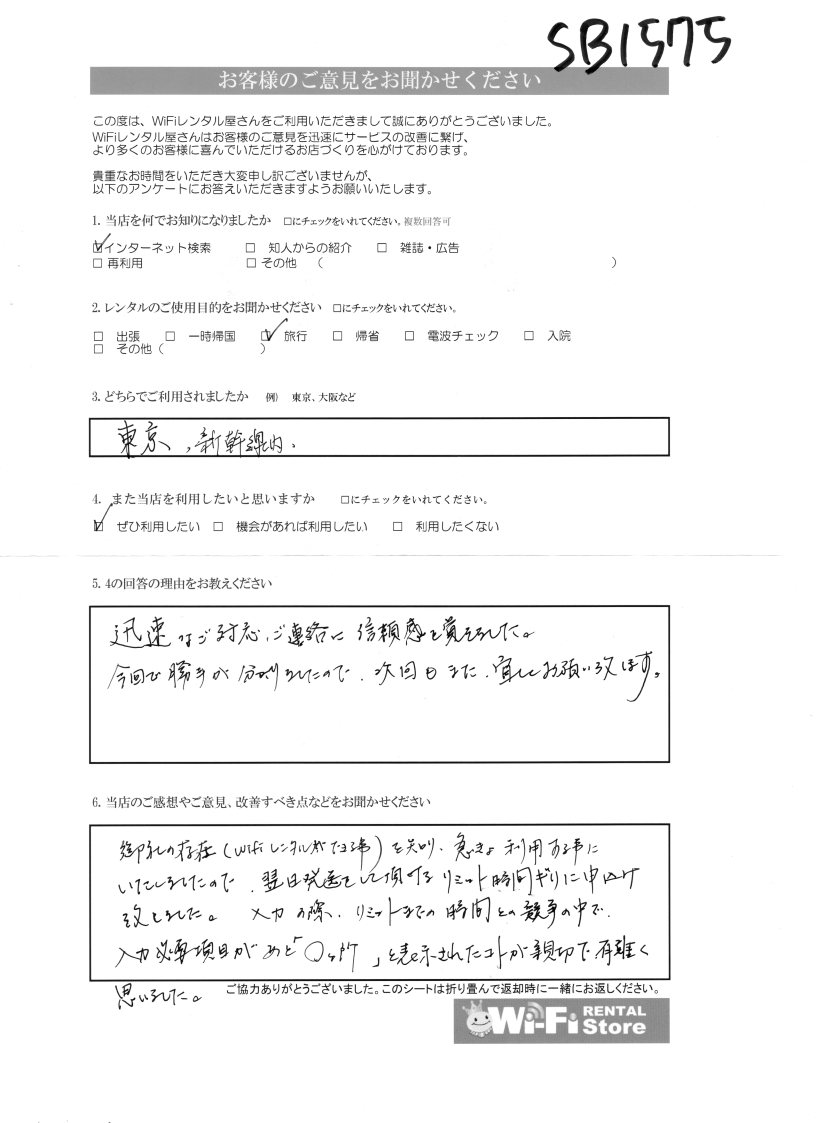 SB1575
お客様のご意見をお聞かせください
この度は、WiFiレンタル屋さんをご利用いただきまして誠にありがとうございました。
WiFiレンタル屋さんはお客様のご意見を迅速にサービスの改善に繋げ、
より多くのお客様に喜んでいただけるお店づくりを心がけております。
貴重なお時間をいただき大変申し訳ございませんが、
以下のアンケートにお答えいただきますようお願いいたします。
1. 当店を何でお知りになりましたか □にチェックをいれてください。複数回答可
☑インターネット検索 □ 知人からの紹介 □ 雑誌・広告
□ 再利用 □ その他 ( )
2. レンタルのご使用目的をお聞かせください □にチェックをいれてください。
□ 出張 □ 一時帰国 ☑ 旅行 □ 帰省 □ 電波チェック □ 入院
□ その他 ( )
3. どちらでご利用されましたか 例) 東京、大阪など
東京、新幹線内、
4. また当店を利用したいと思いますか □にチェックをいれてください。
☑ ぜひ利用したい □ 機会があれば利用したい □ 利用したくない
5. 4の回答の理由をお教えください
迅速なご対応、ご連絡に信頼感を覚えました。
今回で勝手が分かりましたので、次回もまた、宜しくお願い致します。
6. 当店のご感想やご意見、改善すべき点などをお聞かせください
御社の存在(Wifiレンタルができる事)を知り、急きょ利用する事に
いたしましたので、翌日発送をして頂けるリミット時間ギリに申込け
致しました。入力の際、リミットまでの時間との競争の中で、
入力必要項目が あと「〇ヶ所」と表示されたコトが親切で有難く
思いました。
ご協力ありがとうございました。このシートは折り畳んで返却時に一緒にお返しください。
Wi-Fi RENTAL Store